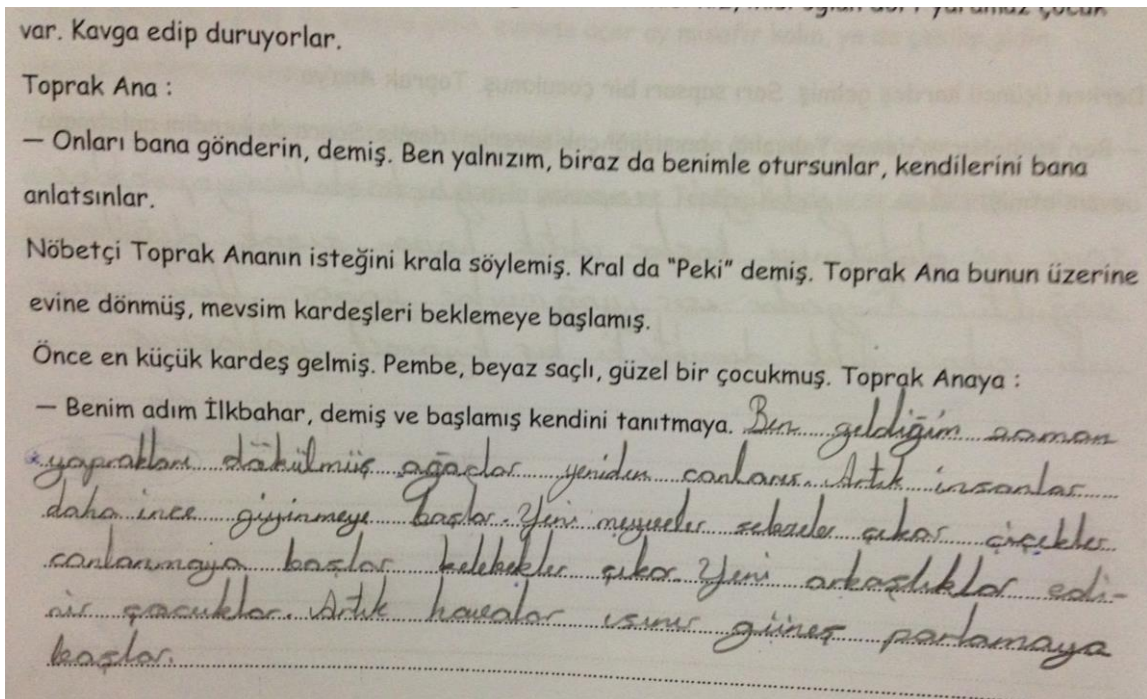 var. Kavga edip duruyorlar.
Toprak Ana :
— Onları bana gönderin, demiş. Ben yalnızım, biraz da benimle otursunlar, kendilerini bana
anlatsınlar.
Nöbetçi Toprak Ananın isteğini krala söylemiş. Kral da "Peki" demiş. Toprak Ana bunun üzerine
evine dönmüş, mevsim kardeşleri beklemeye başlamış.
Önce en küçük kardeş gelmiş. Pembe, beyaz saçlı, güzel bir çocukmuş. Toprak Anaya :
— Benim adım İlkbahar, demiş ve başlamış kendini tanıtmaya. Ben geldiğim zaman
yaprakları dökülmüş ağaçlar yeniden canlanır. Artık insanlar
daha ince giyinmeye başlar. Yeni meyveler sebzeler çıkar çiçekler
canlanmaya başlar kelebekler çıkar. Yeni arkaşlıklar edi-
nir çocuklar. Artık havalar ısınır güneş parlamaya
başlar.